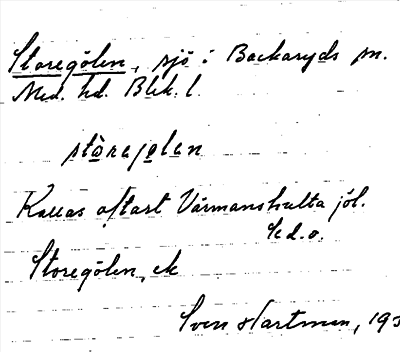 Storegölen, sjö i Backaryds sn.
Med. hd. Blek. l.
stòrejolen
Kallas oftast Värmanshulta jöl.
Se d.o.
Storegölen, ek
Sven Hartman, 193